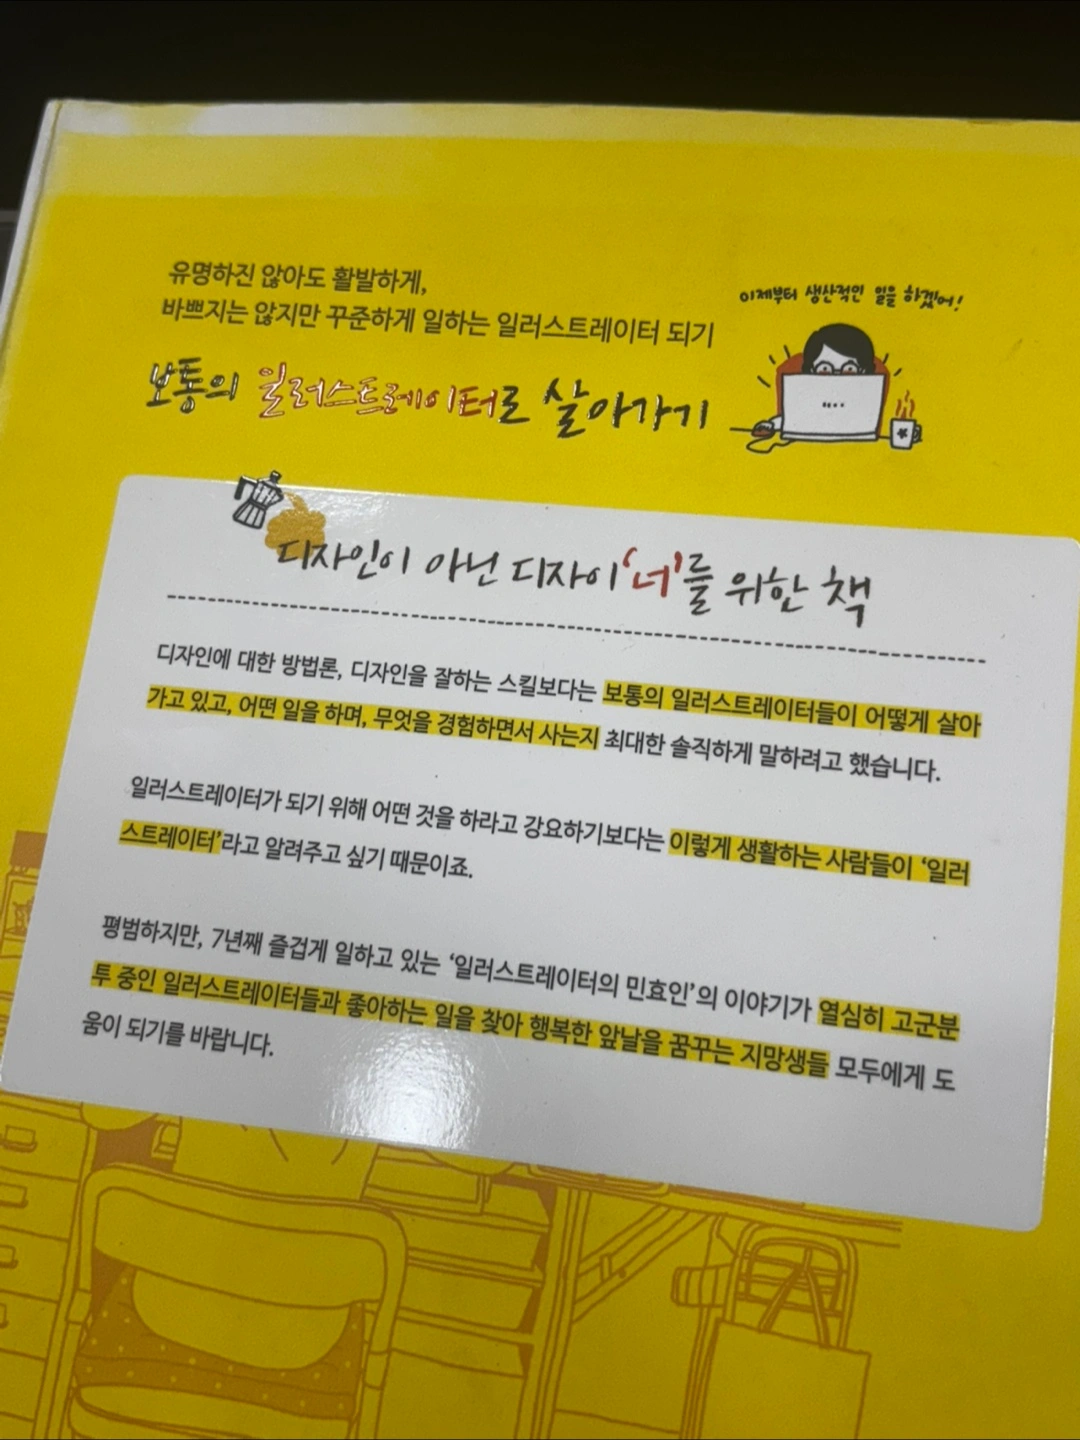 유명하진 않아도 활발하게,
바쁘지는 않지만 꾸준하게 일하는 일러스트레이터 되기
이제부터 생산적인 일을 하겠어!
보통의 일러스트레이터로 살아가기
디자인이 아닌 디자이'너'를 위한 책
디자인에 대한 방법론, 디자인을 잘하는 스킬보다는 보통의 일러스트레이터들이 어떻게 살아
가고 있고, 어떤 일을 하며, 무엇을 경험하면서 사는지 최대한 솔직하게 말하려고 했습니다.
일러스트레이터가 되기 위해 어떤 것을 하라고 강요하기보다는 이렇게 생활하는 사람들이 ‘일러
스트레이터’라고 알려주고 싶기 때문이죠.
평범하지만, 7년째 즐겁게 일하고 있는 ‘일러스트레이터의 민효인’의 이야기가 열심히 고군분
투 중인 일러스트레이터들과 좋아하는 일을 찾아 행복한 앞날을 꿈꾸는 지망생들 모두에게 도
움이 되기를 바랍니다.